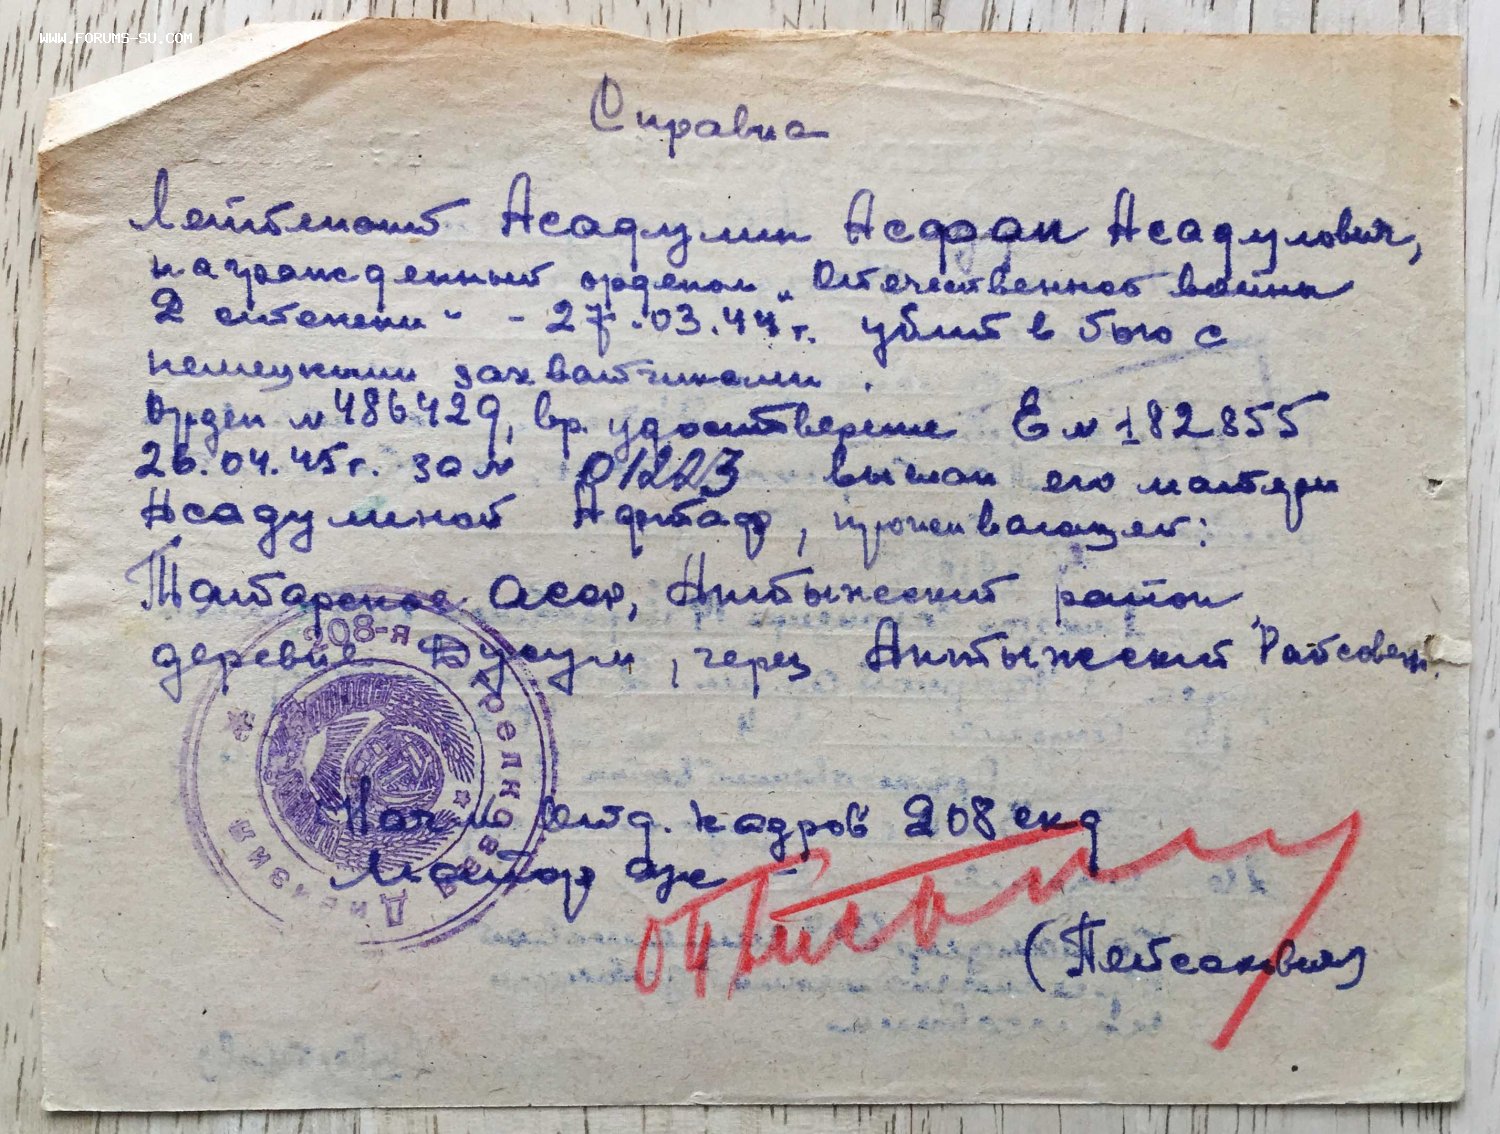 WWW.FORUMS-SU.COM
Справка
Лейтенант Асадулин Асфдан Асадулович,
награжденный орденом „Отечественной войны
2 степени" - 27.03.44 г. убит в бою с
немецкими захватчиками.
Орден № 486429, вр. удостверение Е № 182855
26.04.45 г. за № 01223 выслан его матери
Асадулиной Афтаф, проживающей:
Татарское АССР, Актынский район,
деревне, через Актынский „Райсовет".
208-я Стрелковая Дивизия
Нач-к Отд. кадров 208 скд
Майор а/с
(Пейсахович)